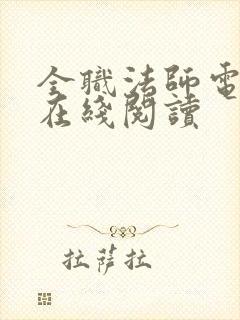 全職法師電
在綫閱讀
拉薩拉